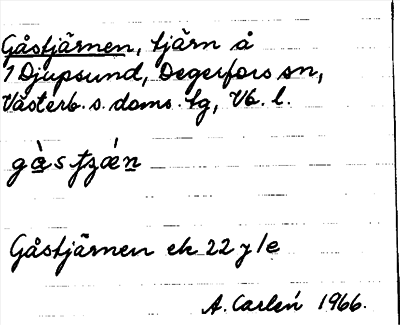 Gåstjärnen, tjärn å
1 Djupsund, Degerfors sn,
Västerb. s. doms. tg, Vb. l.
Gåstjärnen ek 22 y 1e
A. Carlén 1966.